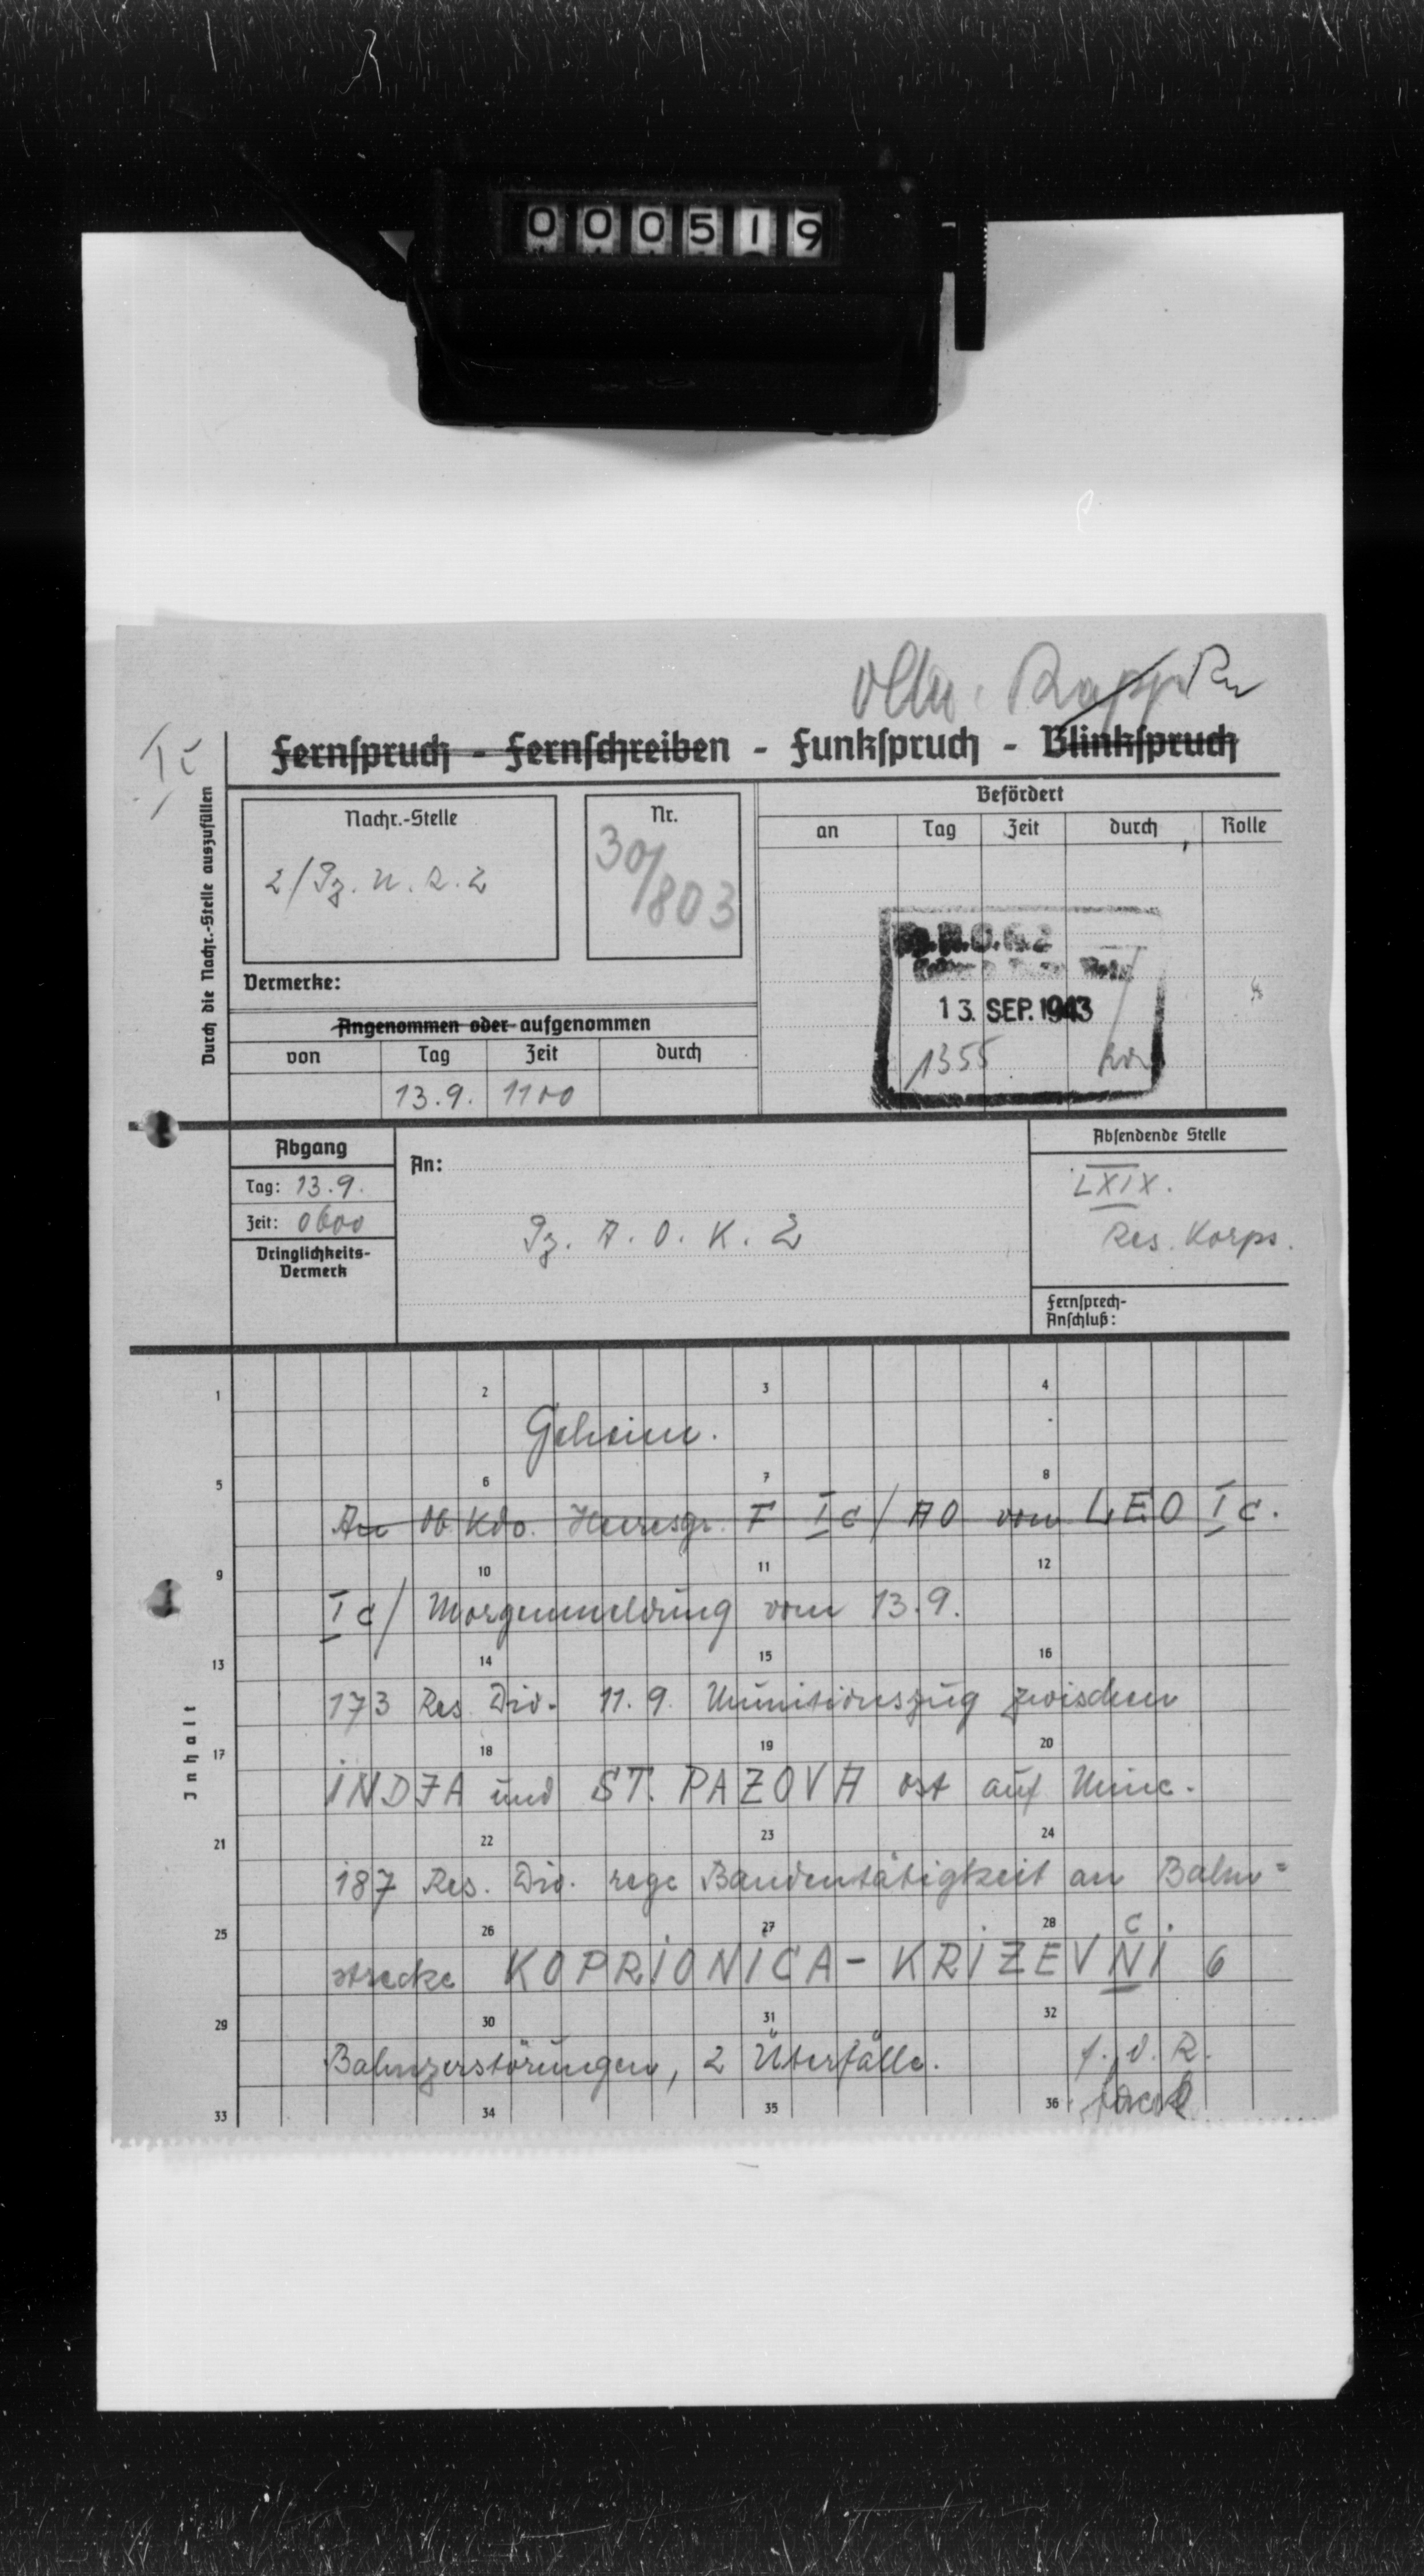 000519
Ic
Fernspruch - Fernschreiben - Funkspruch - Blinkspruch
Durch die Nachr.-Stelle auszufüllen
Nachr.-Stelle
2/Pz. N. R. 2
Nr.
30/803
Vermerke:
Angenommen oder aufgenommen
von Tag Zeit durch
13.9. 1100
Befördert
an Tag Zeit durch Rolle
13. SEP. 1943
1355
Abgang
Tag: 13.9.
Zeit: 0600
Dringlichkeits-
Vermerk
An:
Pz. A. O. K. 2
Absendende Stelle
LXIX.
Res. Korps.
Fernsprech-
Anschluß:
Inhalt
1 2 3 4
Geheim.
5 6 7 8
An Ob Kdo. Heeresgr. F Ic/AO vom LEO Ic.
9 10 11 12
Ic/ Morgenmeldung vom 13.9.
13 14 15 16
173 Res. Div. 11.9. Munitionszug zwischen
17 18 19 20
INDJA und ST. PAZOVA ost auf Mine.
21 22 23 24
187 Res. Div. rege Bandentätigkeit an Bahn=
25 26 27 28
c
strecke KOPRIONICA - KRIZEVNI 6
29 30 31 32
Bahnzerstörungen, 2 Überfälle.
f. d. R.
33 34 35 36